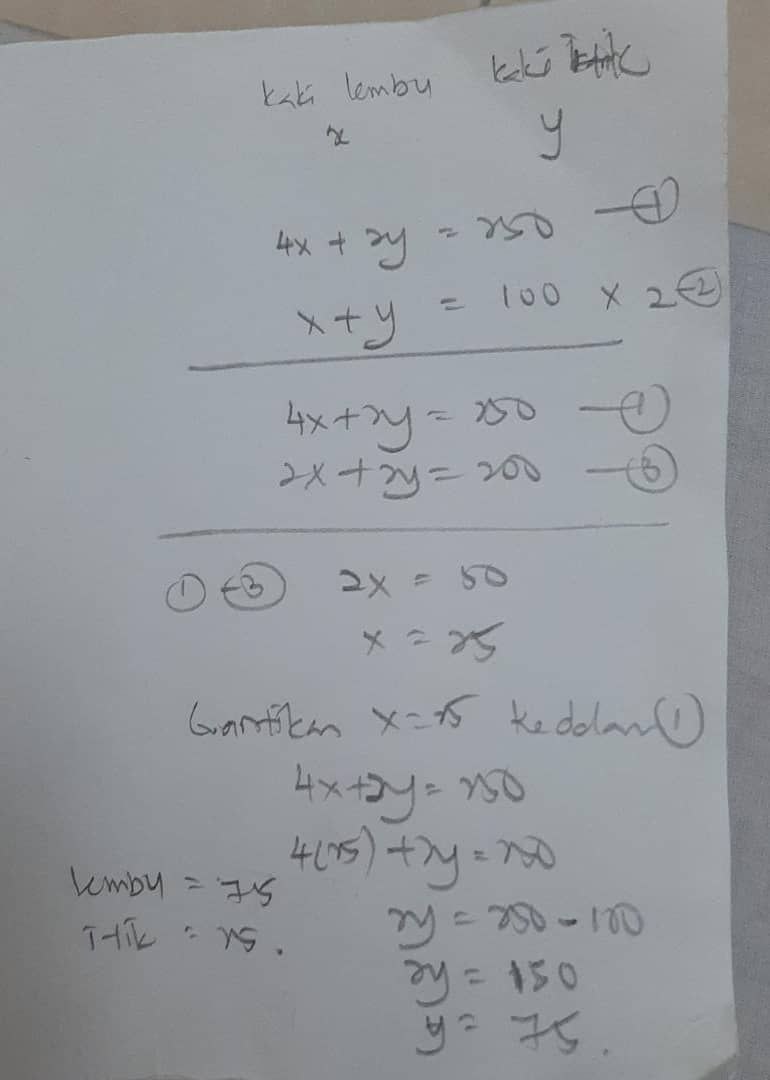 kaki lembu kaki itik
x y
4x + 2y = 250 — ①
x + y = 100 × 2 — ②
4x + 2y = 250 — ①
2x + 2y = 200 — ③
① - ③ 2x = 50
x = 25
Gantikan x = 25 ke dalam ①
4x + 2y = 250
4(25) + 2y = 250
2y = 250 - 100
2y = 150
y = 75.
lembu = 75
Itik = 25.